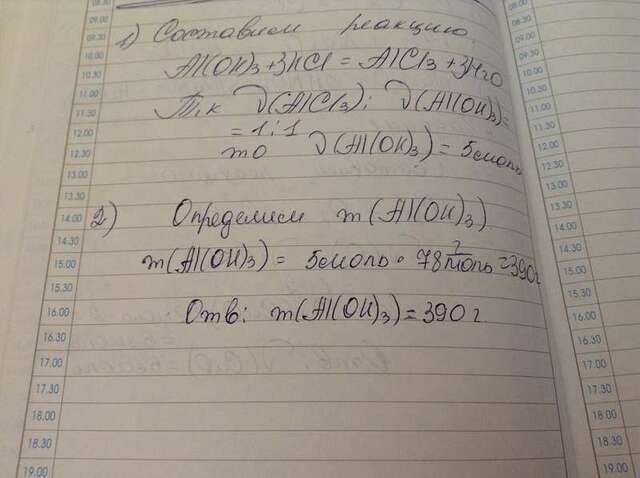 1) Составим реакцию
Al(OH)3+3HCl = AlCl3 +3H2O
Т.к ν(AlCl3): ν(Al(OH)3)=
=1:1
то ν(Al(OH)3) = 5моль
2) Определим m(Al(OH)3)
m(Al(OH)3) = 5моль • 78 г/моль =390г
Отв: m(Al(OH)3)=390г
08.30
09.00
09.30
10.00
10.30
11.00
11.30
12.00
12.30
13.00
13.30
14.00
14.30
15.00
15.30
16.00
16.30
17.00
17.30
18.00
18.30
19.00
09.00
09.30
10.00
10.30
11.00
11.30
12.00
12.30
13.00
13.30
14.00
14.30
15.00
15.30
16.00
16.30
17.00
17.30
18.00
18.30
19.00